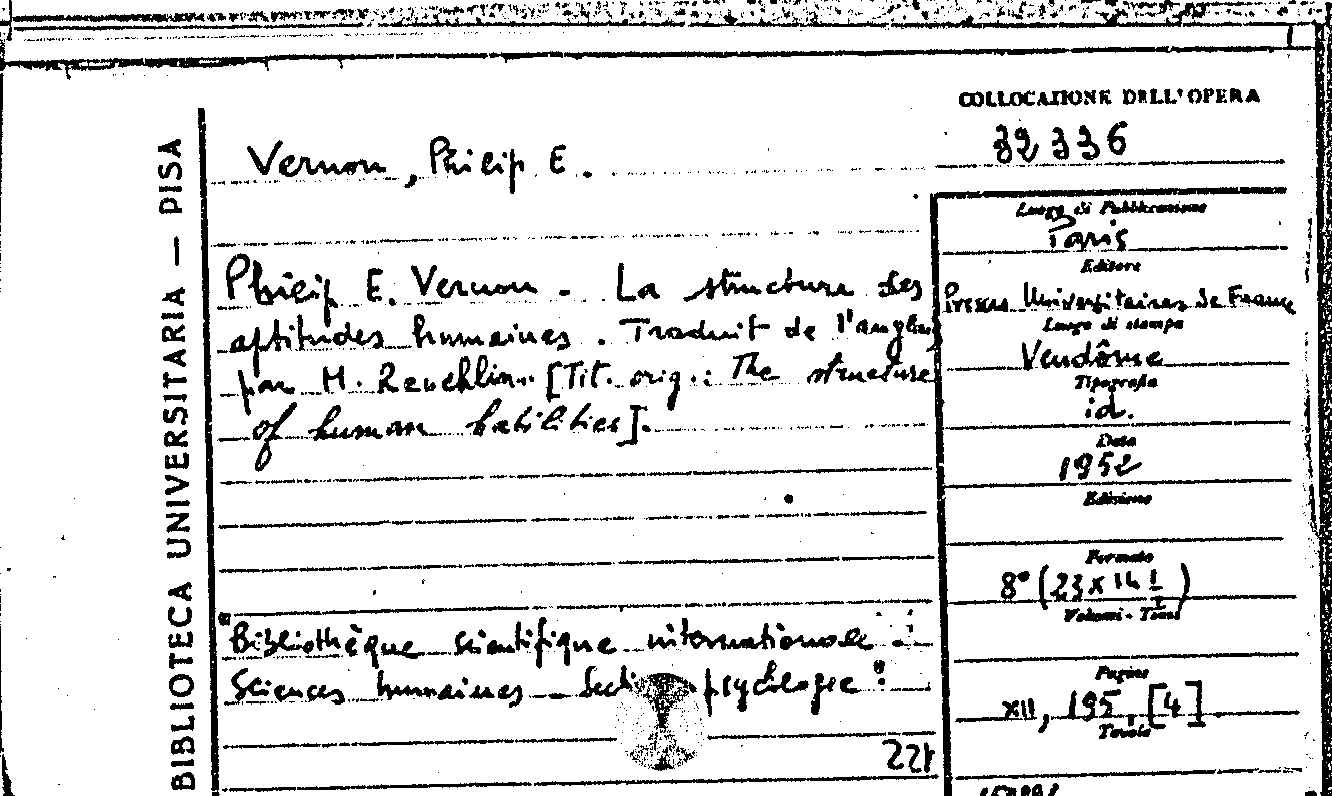 COLLOCAZIONE DELL'OPERA
32336
BIBLIOTECA UNIVERSITARIA — PISA
Vernon, Philip E.
Philip E. Vernon - La structure des
aptitudes humaines. Traduit de l'anglais
par M. Reuchlin. [Tit. orig.: The structure
of human habilities].
"Bibliothèque scientifique internationale :
Sciences humaines - Sect. psychologie"
221
Luogo di Pubblicazione
Paris
Editore
Presses Universitaires de France
Luogo di stampa
Vendôme
Tipografia
id.
Data
1952
Edizione
Formato
8° (23 x 14
Volumi - Tomi
Pagine
XII, 195, [4]
Tavole